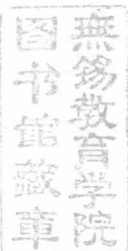 無錫教育学院
图书馆藏章